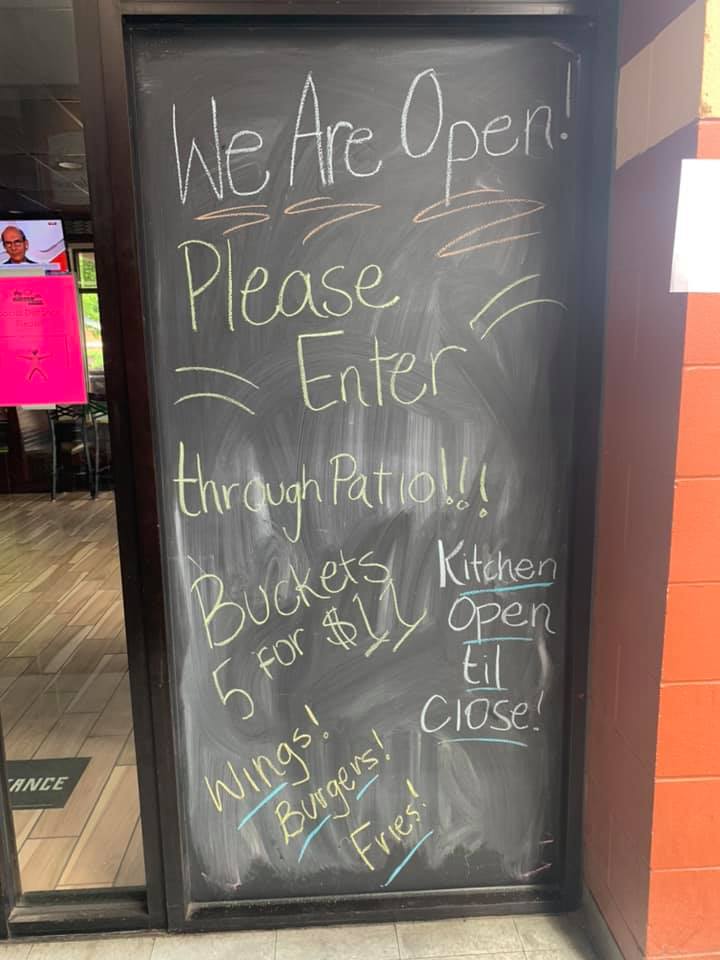 We Are Open!
Please
Enter
through Patio!!!
Buckets
5 for $11
Kitchen
Open
til
Close!
Wings!
Burgers!
Fries!
ANCE